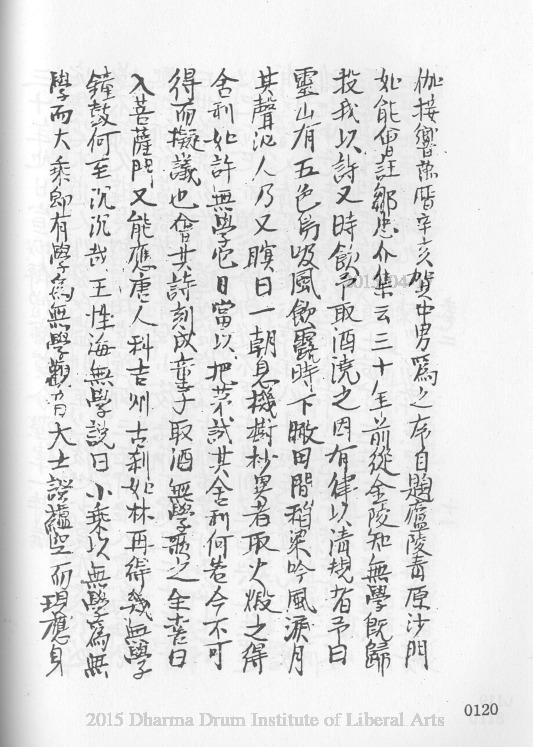 伽接響萬曆辛亥賀中男為之序自題廬陵青原沙門
如能會註鄒忠介集云三十年前從金陵知無學既歸
投我以詩又時飲予取酒澆之因有律以清規者予曰
靈山有五色鳥吸風飲露時下瞰田間稻粱吟風淚月
其聲沁人乃又瞑日一朝息機樹杪異者取火煅之得
舍利如許無學它日當以把茅試其舍利何若今不可
得而擬議也會其詩刻成童子取酒無學歌之全書曰
入菩薩門又能應唐人科吉州古剎如林再得幾無學
鐘鼓何至沉沉哉王性海無學說曰小乘以無學為無
學而大乘即有學為無學觀音大士證蘊空而現應身
0120
2015 Dharma Drum Institute of Liberal Arts